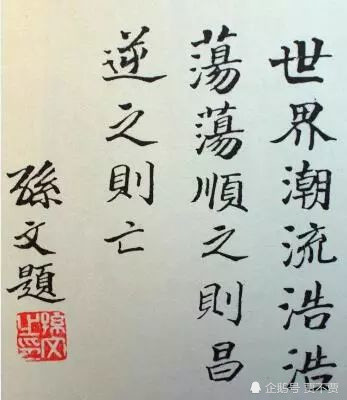 世界潮流浩浩
蕩蕩順之則昌
逆之則亡
孫文題
孫文之印
企鹅号 贾不贾